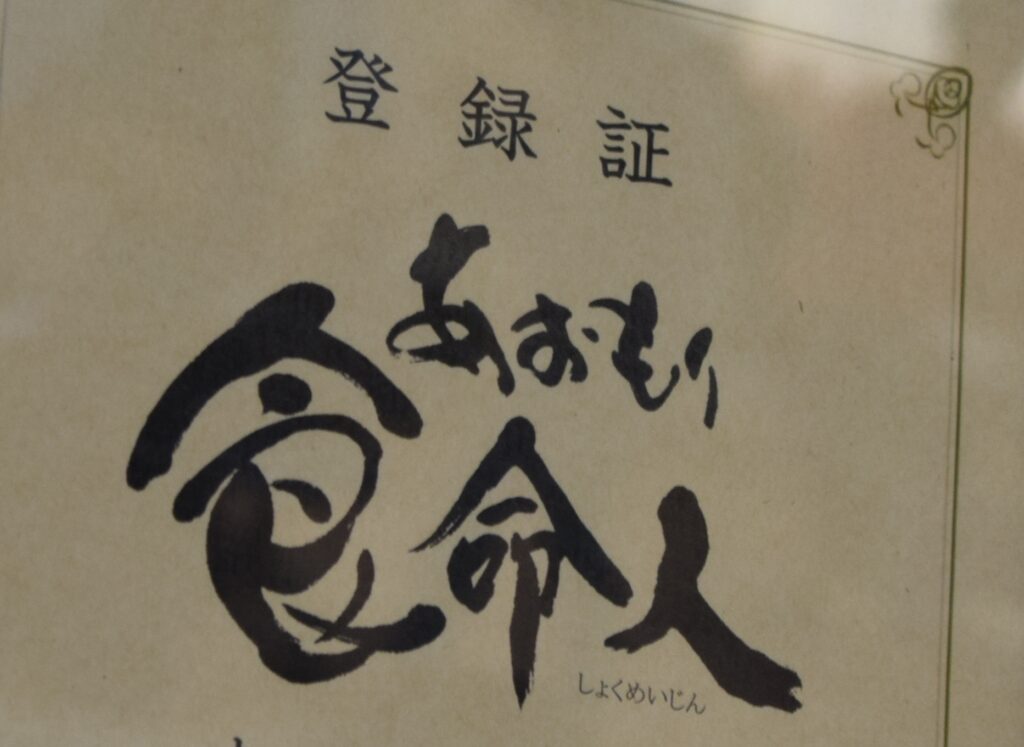 登録証
あおもり
食命人
しょくめいじん